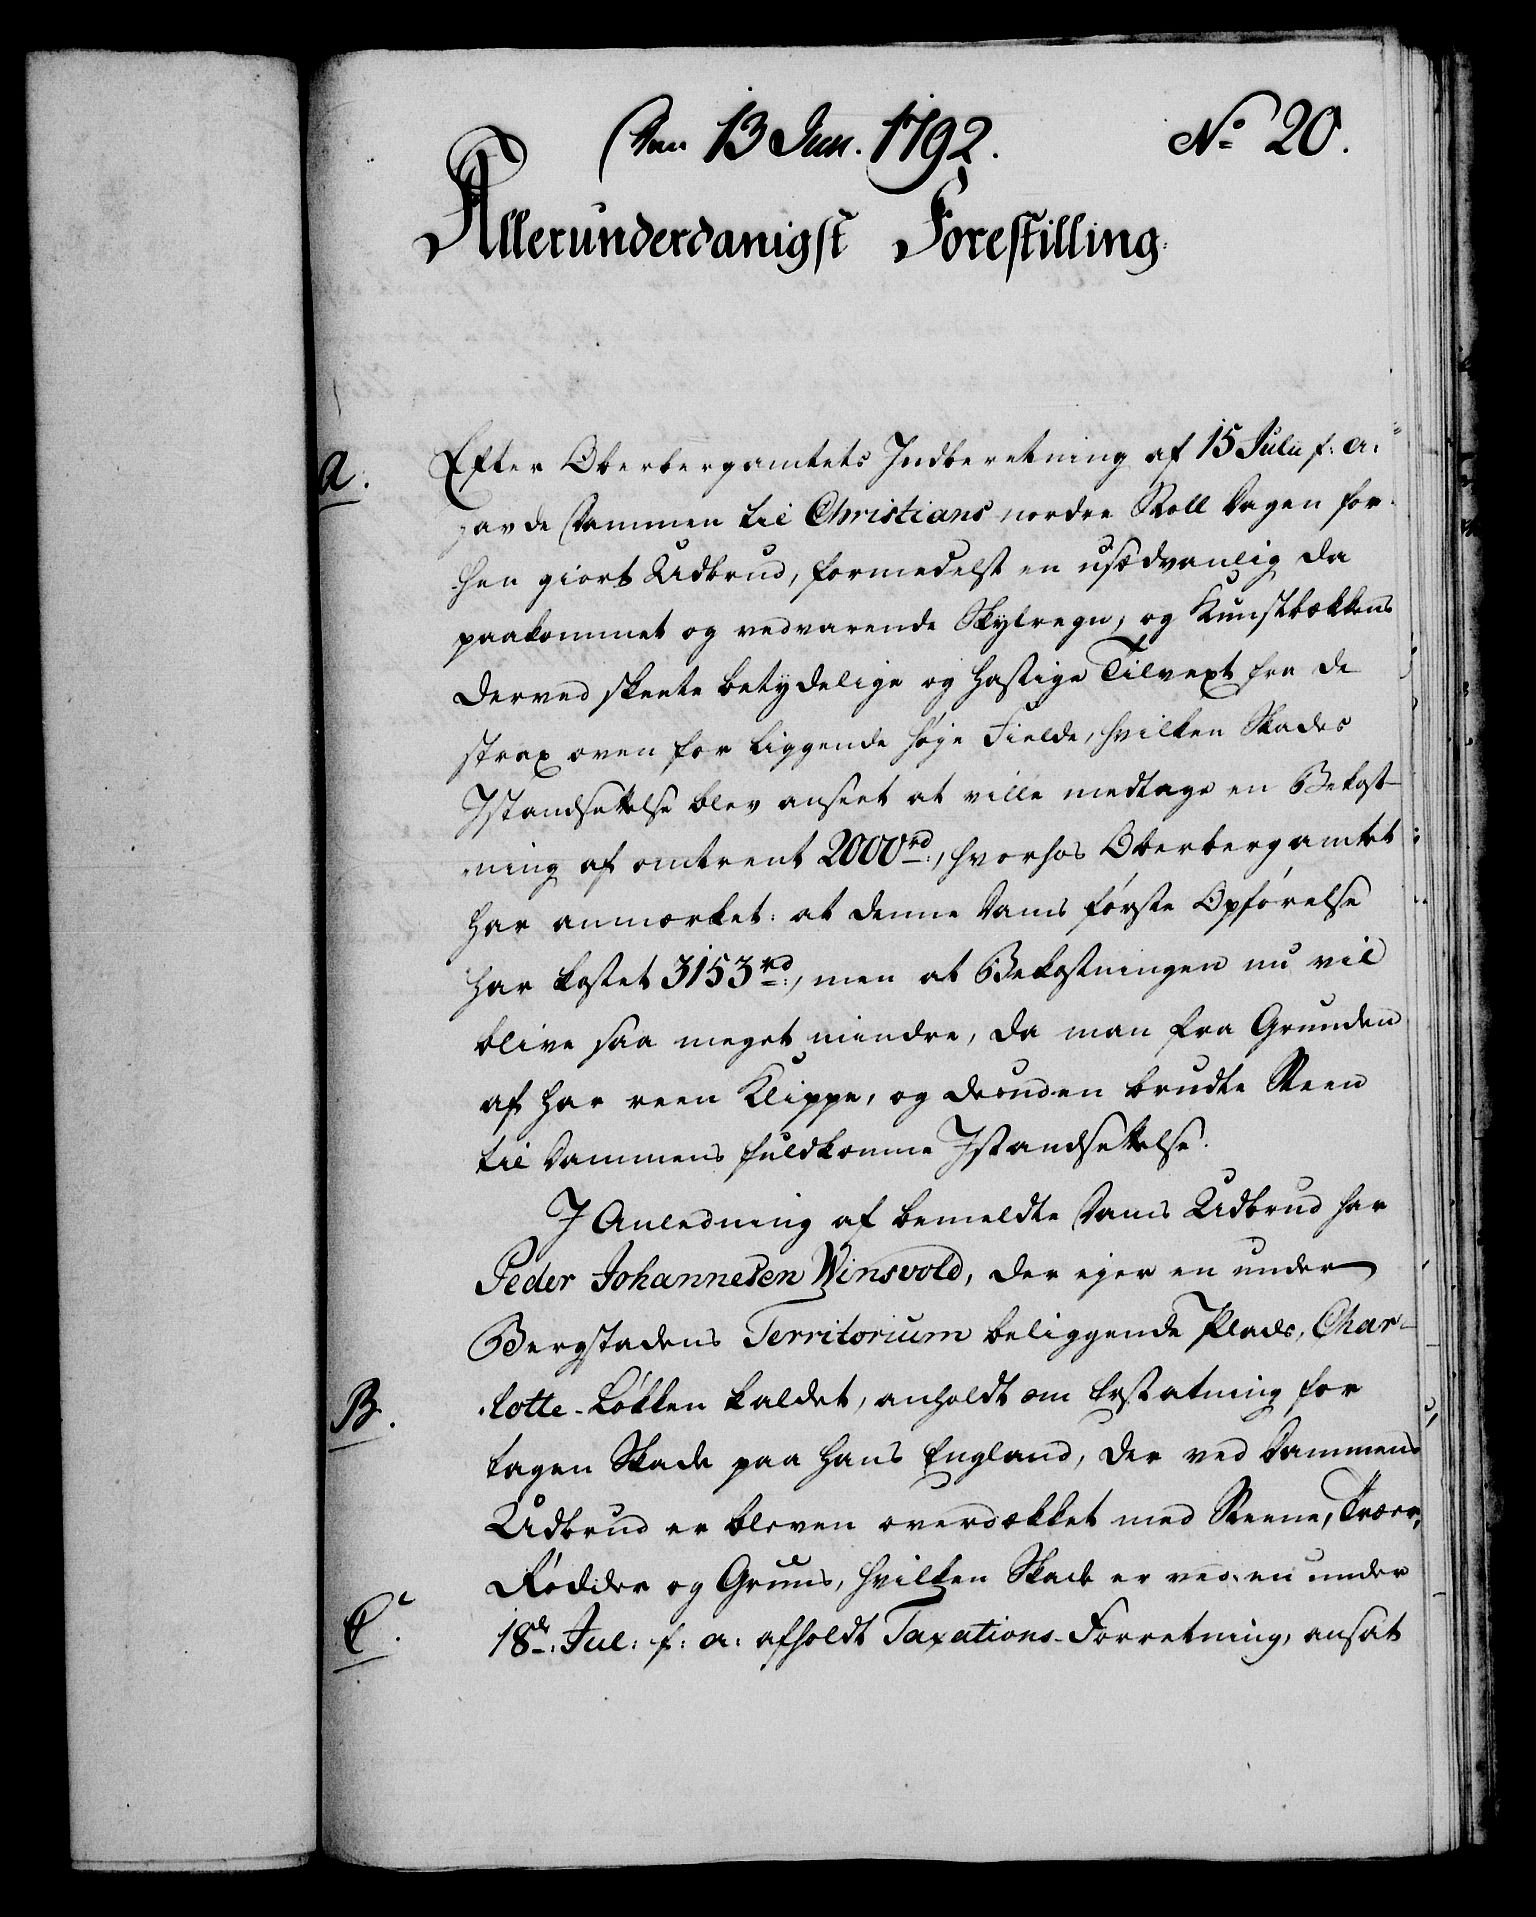 Den 13 Jan. 1792. No 20.
Allerunderdanigst Forestilling.
a. Efter Oberbergamtets Indberetning af 15 Julii f: a:
havde Dammen til Christians nordre Stoll Dagen for-
hen giort Udbrud, formedelst en usædvanlig da
paakommet og vedvarende Skylregn, og Kunstbækkens
derved skeete betydelige og hastige Tilvext fra de
strax oven for liggende høje Fielde, hvilken Skades
Istandsettelse blev anseet at ville medtage en Bekost-
ning af omtrent 2000rd:, hvorhos Oberbergamtet
har anmærket: at denne Dams første Opførelse
har kostet 3153rd:, men at Bekostningen nu vil
blive saa meget mindre, da man fra Grunden
af har reen Klippe, og desuden brudte Steen
til Dammens fuldkomne Istandsettelse.
I Anledning af bemeldte Dams Udbrud har
Peder Johannesen Winsvold, der ejer en under
Bergstadens Territorium beliggende Plads, Char-
B. lotte-Løkken kaldet, anholdt om Erstatning for
tagen Skade paa hans England, der ved Dammens
Udbrud er bleven overdækket med Steene, Træer,
Rødder og Gruus, hvilken Skade er ved en under
C. 18de: Jul: f: a: afholdt Taxations-Forretning, ansat